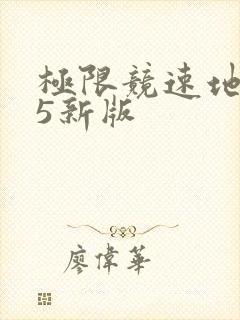 極限競速地
5新版
廖偉華